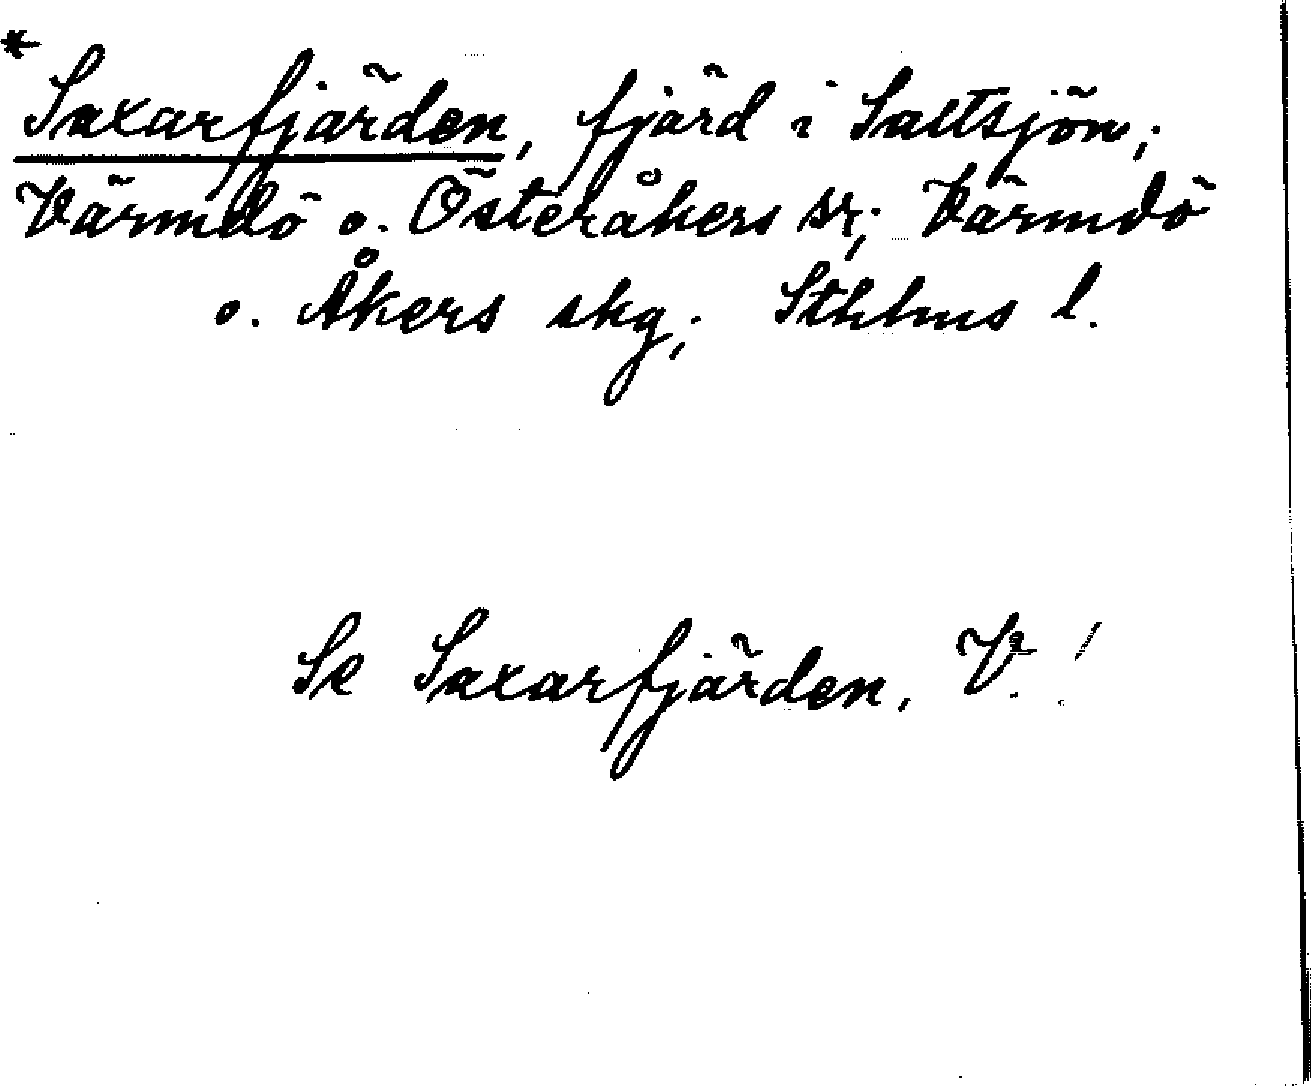 * Saxarfjärden, fjärd i Saltsjön;
Värmdö o. Österåkers sr; Värmdö
o. Åkers skg; Sthlms l.
Se Saxarfjärden, V.!